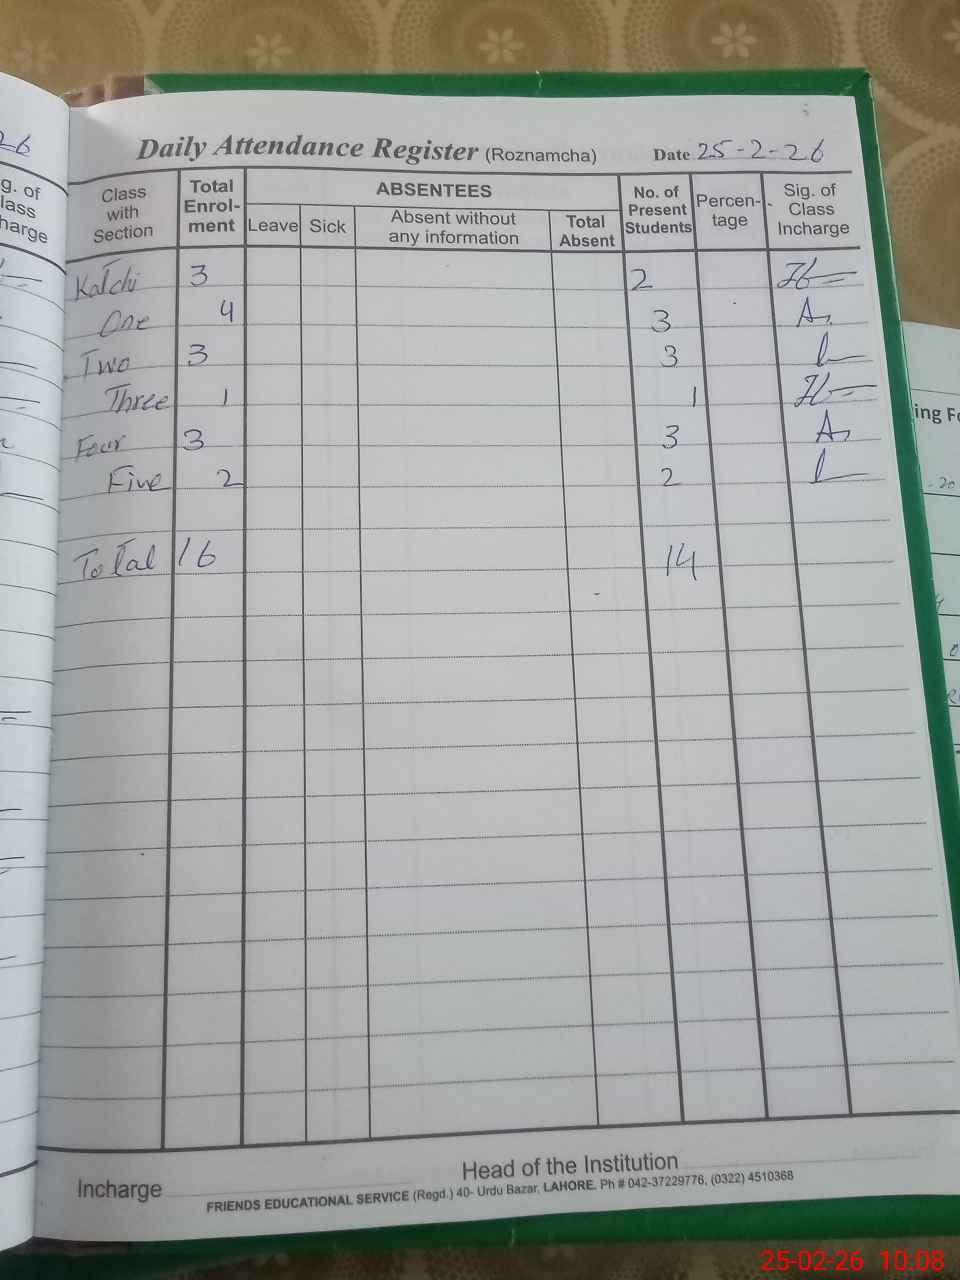 26
Daily Attendance Register (Roznamcha) Date 25-2-26
Class with Section Total Enrol-ment ABSENTEES Leave Sick Absent without any information Total Absent No. of Present Students Percen-tage Sig. of Class Incharge
Katchi 3 2
One 4 3
Two 3 3
Three 1 1
Four 3 3
Five 2 2
Total 16 14
Incharge Head of the Institution
FRIENDS EDUCATIONAL SERVICE (Regd.) 40- Urdu Bazar, LAHORE. Ph # 042-37229776, (0322) 4510368
25-02-26 10:08